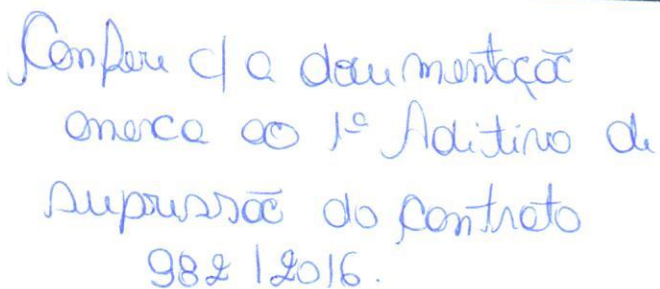 Confere c/ a documentação
anexa ao 1º Aditivo de
supressão do contrato
982/2016.